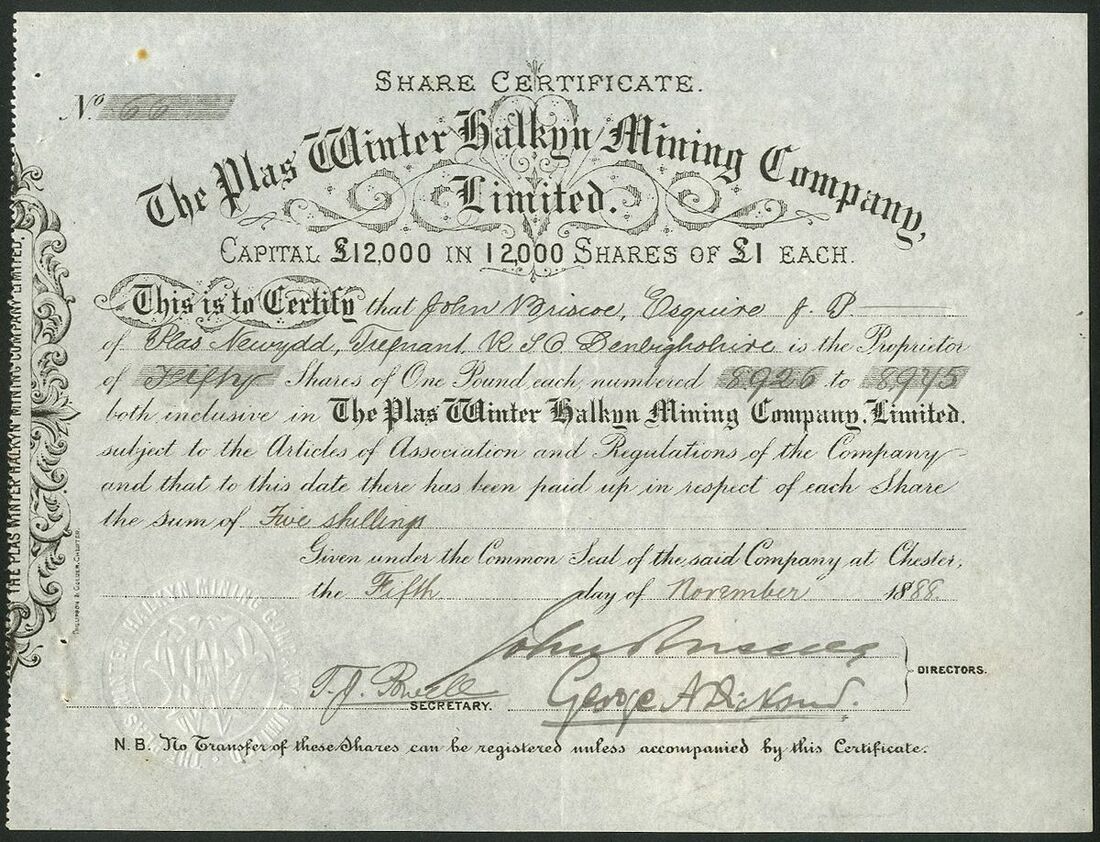 SHARE CERTIFICATE.
No 66
The Plas Winter Halkyn Mining Company,
Limited.
CAPITAL £12,000 IN 12,000 SHARES OF £1 EACH.
This is to Certify that John Briscoe, Esquire J. P
of Plas Newydd, Trefnant, R S O Denbighshire is the Proprietor
of Fifty Shares of One Pound each, numbered 8926 to 8975
both inclusive in The Plas Winter Halkyn Mining Company, Limited.
subject to the Articles of Association and Regulations of the Company
and that to this date there has been paid up in respect of each Share
the sum of Five shillings
Given under the Common Seal of the said Company at Chester,
the Fifth day of November 1888
John Briscoe
George A Dickson.
DIRECTORS.
T. J. Powell
SECRETARY.
N.B. No Transfer of these Shares can be registered unless accompanied by this Certificate.
THE PLAS WINTER HALKYN MINING COMPANY LIMITED.
PHILLIPSON & GOLDER, CHESTER
THE PLAS WINTER HALKYN MINING COMPANY LIMITED